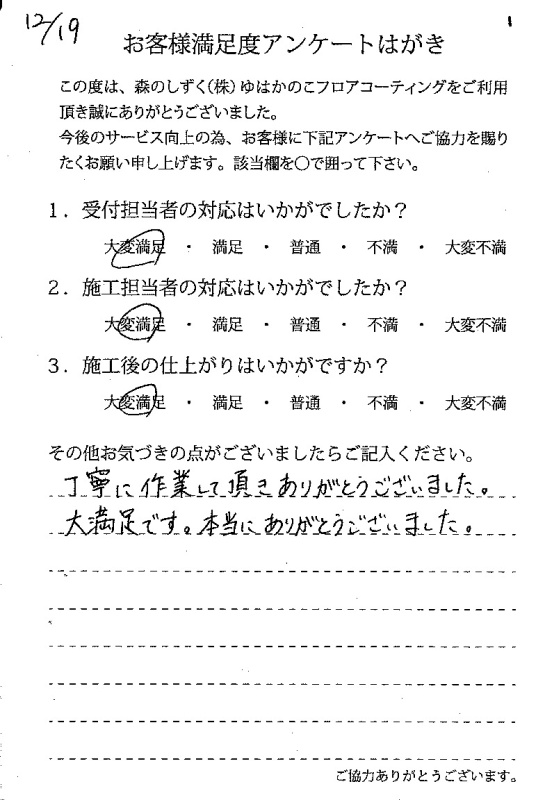 12/19
お客様満足度アンケートはがき
この度は、森のしずく(株)ゆはかのこフロアコーティングをご利用
頂き誠にありがとうございました。
今後のサービス向上の為、お客様に下記アンケートへご協力を賜り
たくお願い申し上げます。該当欄を○で囲って下さい。
1．受付担当者の対応はいかがでしたか？
大変満足 ・ 満足 ・ 普通 ・ 不満 ・ 大変不満
2．施工担当者の対応はいかがでしたか？
大変満足 ・ 満足 ・ 普通 ・ 不満 ・ 大変不満
3．施工後の仕上がりはいかがですか？
大変満足 ・ 満足 ・ 普通 ・ 不満 ・ 大変不満
その他お気づきの点がございましたらご記入ください。
丁寧に作業して頂きありがとうございました。
大満足です。本当にありがとうございました。
ご協力ありがとうございます。